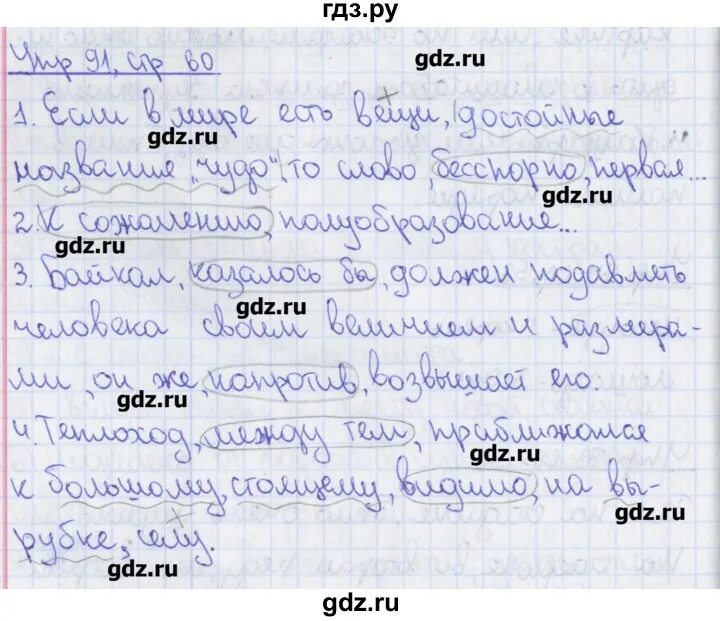 гдз.ру
Упр 91, стр 60
gdz.ru
1. Если в мире есть вещи, достойные
gdz.ru
название „чудо“, то слово, бесспорно, первая...
gdz.ru
2. К сожалению, полуобразование...
gdz.ru
3. Байкал, казалось бы, должен подавлять
gdz.ru
человека своим величием и размера-
ми, он же, напротив, возвышает его.
gdz.ru
4. Теплоход, между тем, приближался
gdz.ru
к большому, стоящему, видимо, на вы-
gdz.ru
рубке, селу.
gdz.ru
gdz.ru